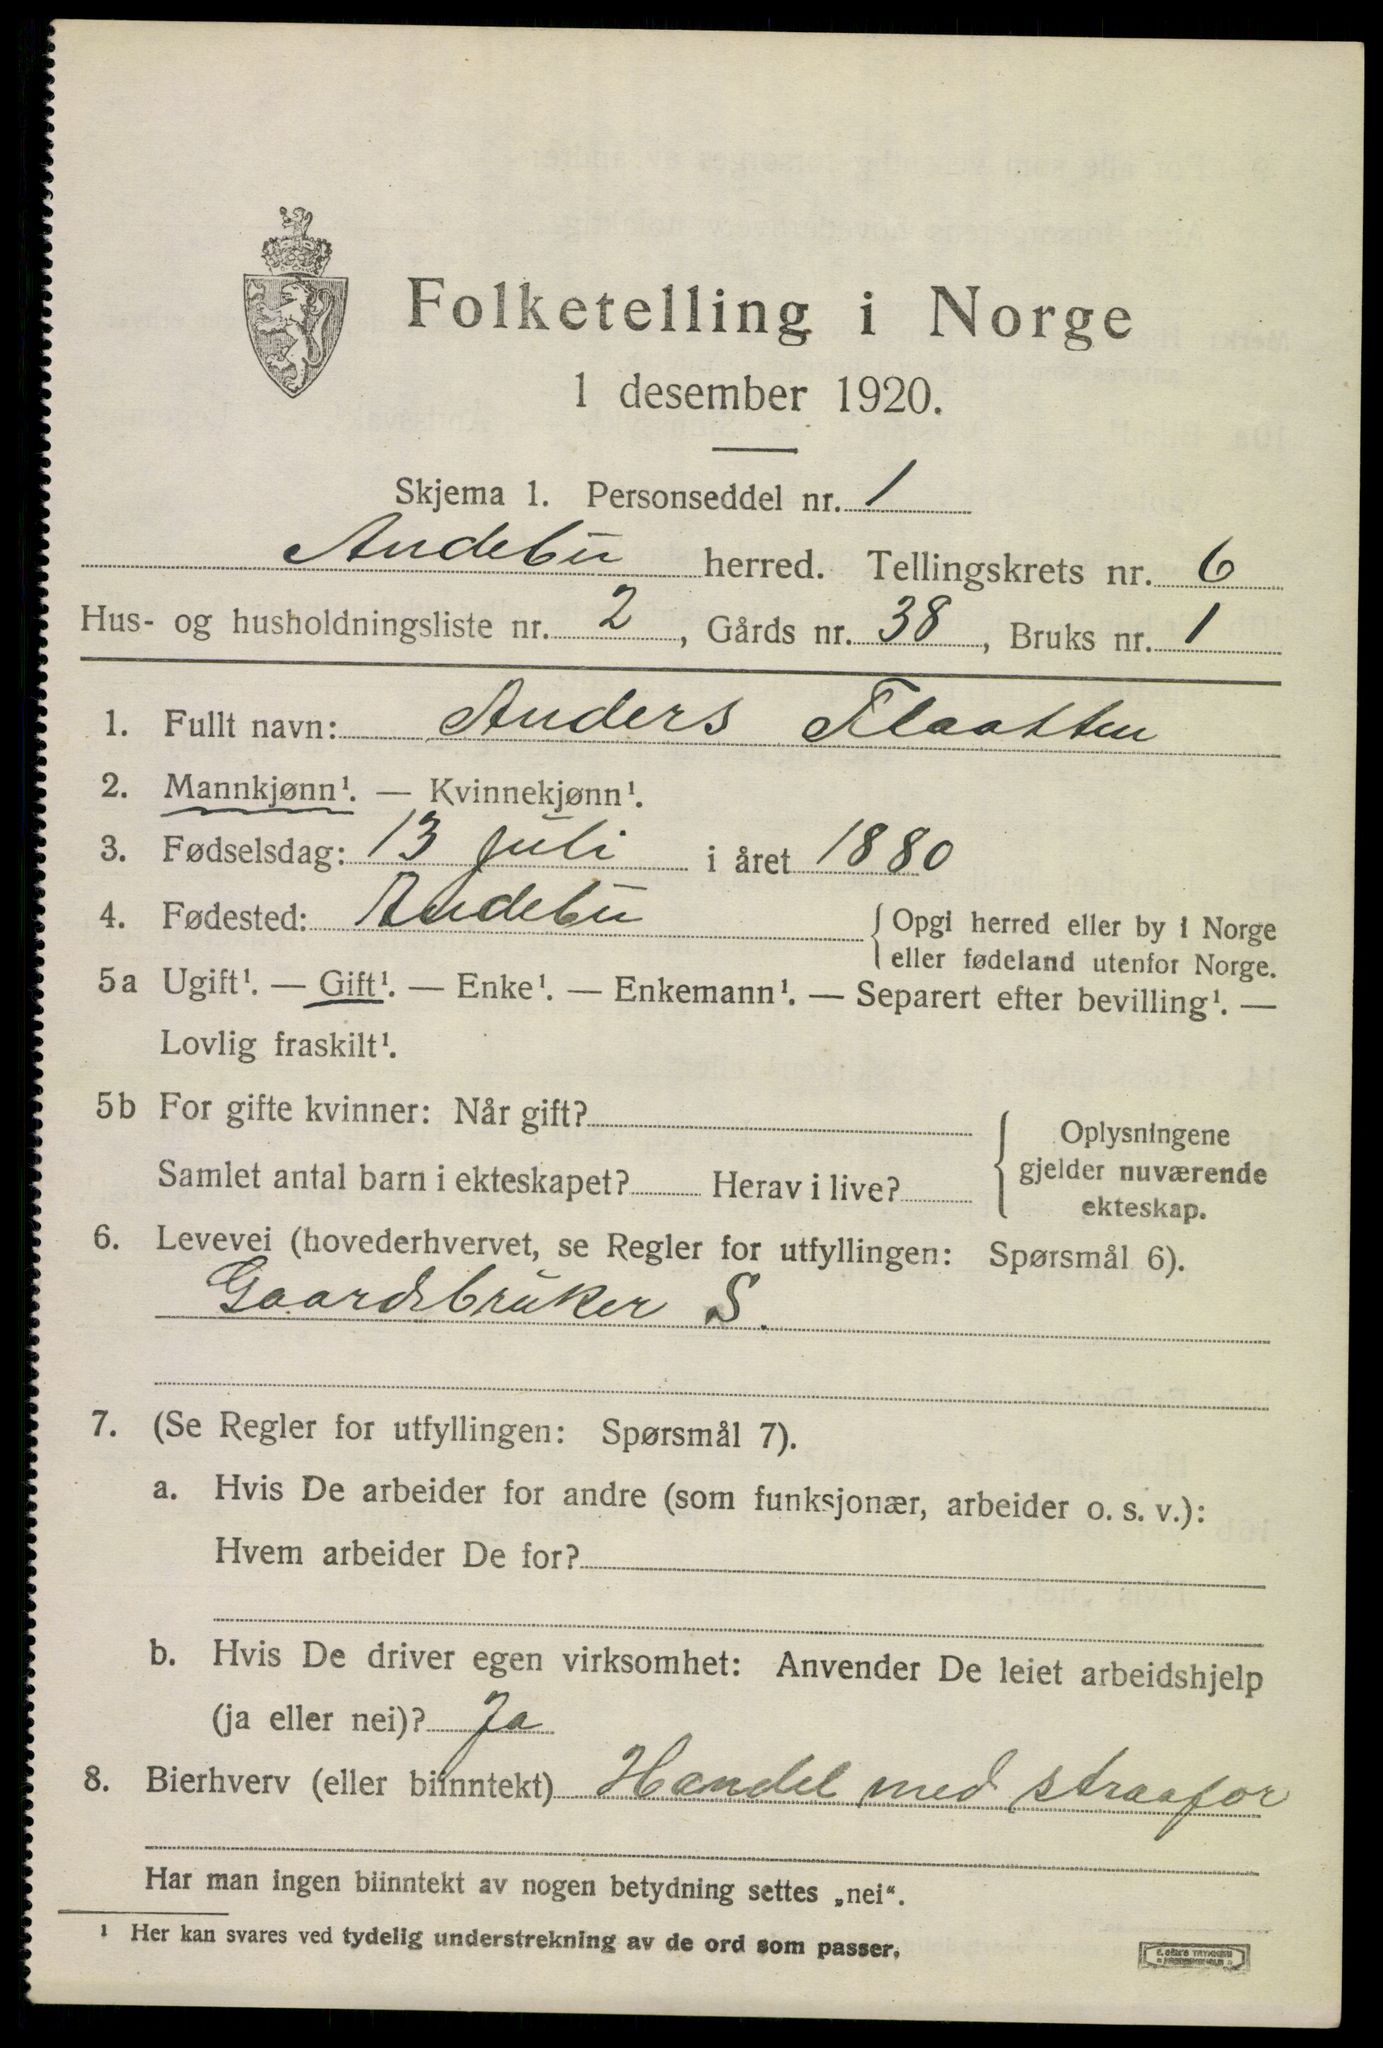 Folketelling i Norge
1 desember 1920.
Skjema 1. Personseddel nr. 1
Andebu herred. Tellingskrets nr. 6
Hus- og husholdningsliste nr. 2, Gårds nr. 38, Bruks nr. 1
1. Fullt navn: Anders Flaatten
2. Mannkjønn¹. — Kvinnekjønn¹.
3. Fødselsdag: 13 juli i året 1880
4. Fødested: Andebu { Opgi herred eller by i Norge
eller fødeland utenfor Norge.
5a Ugift¹. — Gift¹. — Enke¹. — Enkemann¹. — Separert efter bevilling¹. —
Lovlig fraskilt¹.
5b For gifte kvinner: Når gift?
Samlet antal barn i ekteskapet? Herav i live?
{ Oplysningene
gjelder nuværende
ekteskap.
6. Levevei (hovederhvervet, se Regler for utfyllingen: Spørsmål 6).
Gaardsbruker S.
7. (Se Regler for utfyllingen: Spørsmål 7).
a. Hvis De arbeider for andre (som funksjonær, arbeider o. s. v.):
Hvem arbeider De for?
b. Hvis De driver egen virksomhet: Anvender De leiet arbeidshjelp
(ja eller nei)? Ja
8. Bierhverv (eller biinntekt) Handel med straafor
Har man ingen biinntekt av nogen betydning settes „nei“.
¹ Her kan svares ved tydelig understrekning av de ord som passer.